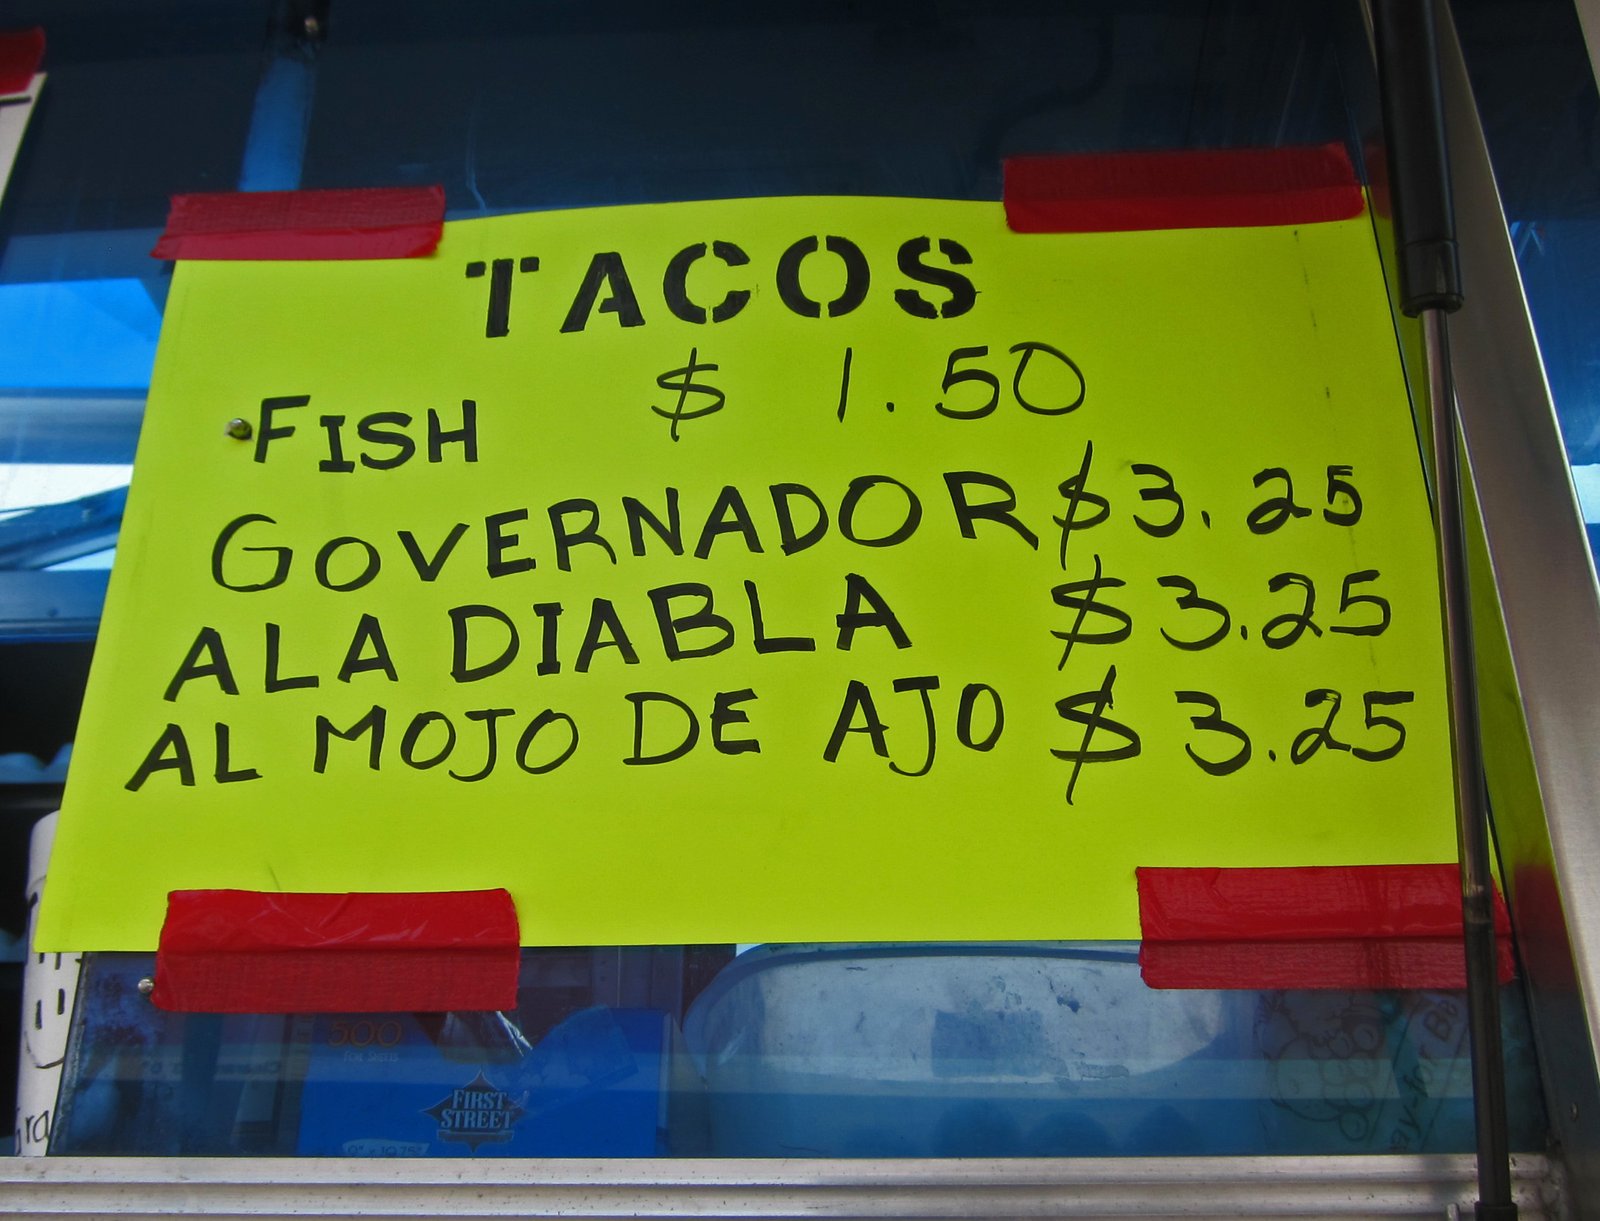 TACOS
FISH $ 1.50
GOVERNADOR $3.25
ALA DIABLA $3.25
AL MOJO DE AJO $3.25
500
FOIL SHEETS
FIRST
STREET
ra